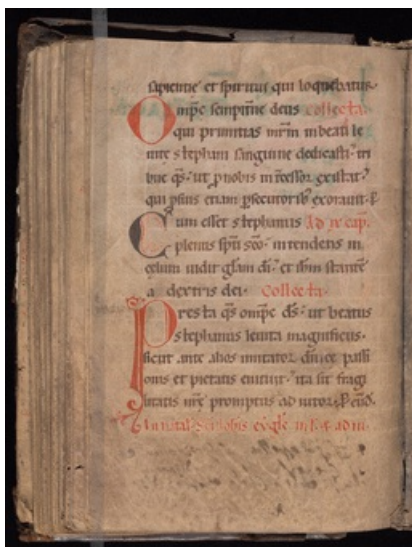 sapientie et spiritus qui loquebatur.
Omps sempitne deus collecta.
qui primitias mrm in beati le
uite stephani sanguine dedicasti. tri
bue qs. ut p nobis intcessor existat.
qui p suis etiam psecutorib exorauit. p
Cum esset stephanus Ad ix cap.
plenus spu sco. intendens in
celum uidit glam di. et ihm stante
a dextris dei. Collecta.
Presta qs omps ds. ut beatus
stephanus leuita magnificus.
sicut ante alios imitator dnice passi
onis et pietatis enituit. ita sit fragi
litatis nre promptus adiutor. p eund.
In natal. sci iohis eugle in & ad